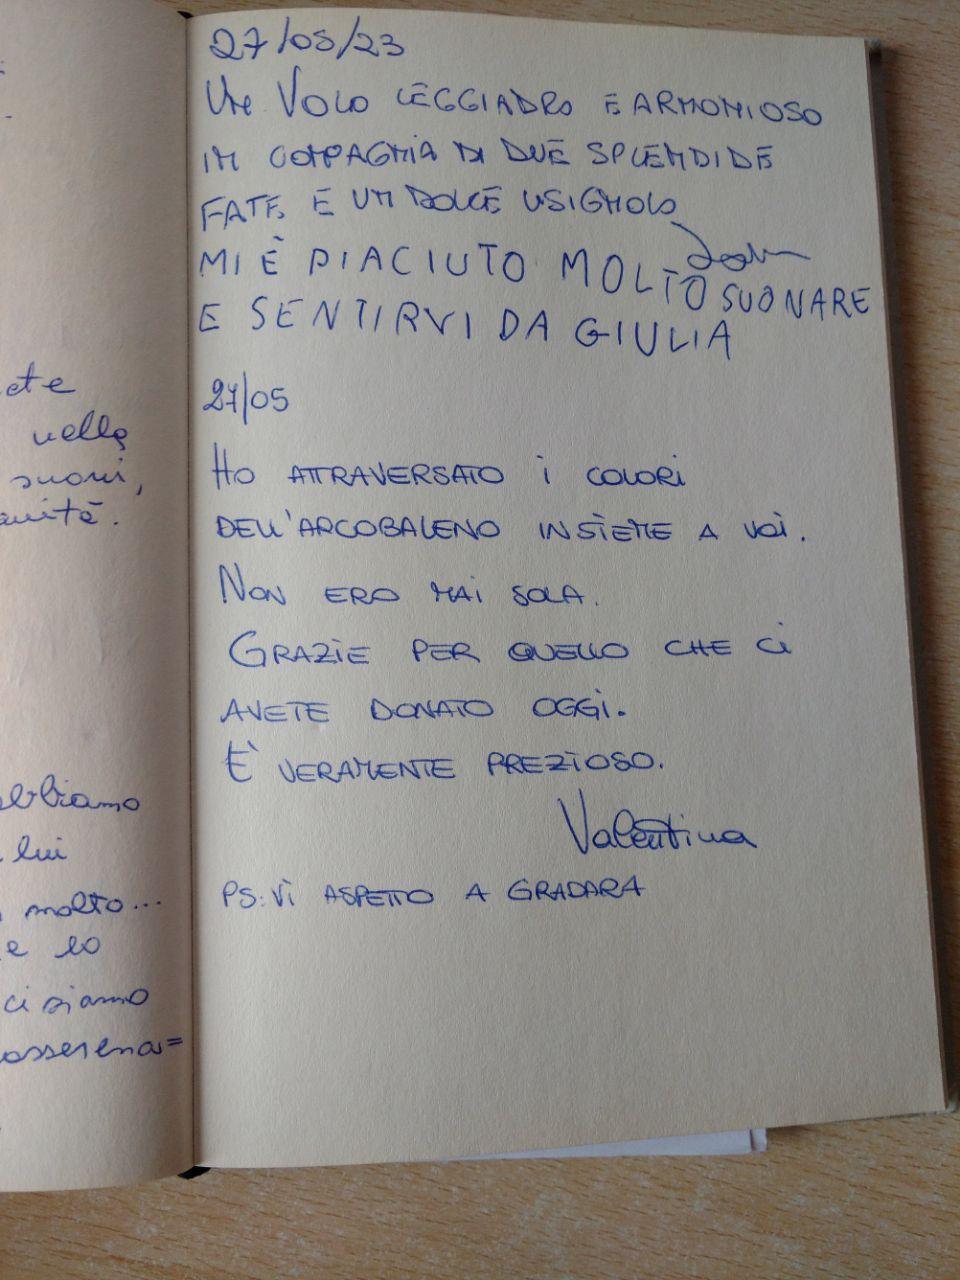 ete
nella
suoni,
bbiamo
lui
molto...
e lo
ci siamo
asserena=
27/05/23
UN VOLO LEGGIADRO E ARMONIOSO
IN COMPAGNIA DI DUE SPLENDIDE
FATE E UN DOLCE USIGNOLO
MI È PIACIUTO MOLTO SUONARE
E SENTIRVI DA GIULIA
27/05
HO ATTRAVERSATO I COLORI
DELL'ARCOBALENO INSIEME A VOI.
NON ERO MAI SOLA.
GRAZIE PER QUELLO CHE CI
AVETE DONATO OGGI.
E' VERAMENTE PREZIOSO.
Valentina
PS: VI ASPETTO A GRADARA